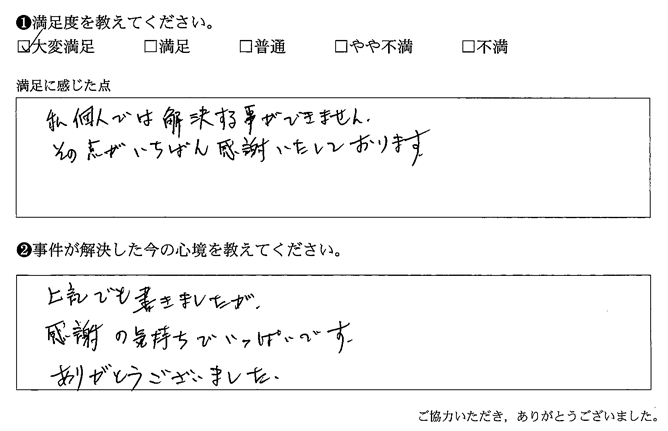 ❶満足度を教えてください。
☑大変満足 □満足 □普通 □やや不満 □不満
満足に感じた点
私個人では解決する事ができません.
その点がいちばん感謝いたしております.
❷事件が解決した今の心境を教えてください。
上記でも書きましたが.
感謝の気持ちでいっぱいです.
ありがとうございました.
ご協力いただき，ありがとうございました。